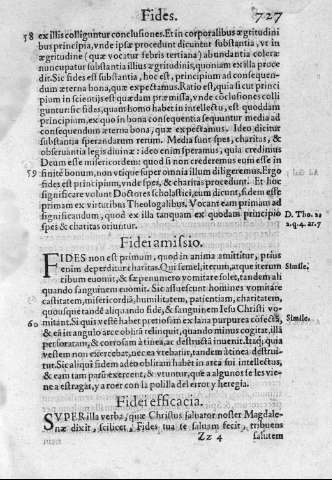 Fides. 727
58 ex illis colliguntur conclusiones. Et in corporalibus ægritudini
bus principia, vnde ipsæ procedunt dicuntur substantia, vt in
ægritudine (quæ vocatur febris tertiana) abundantia coleræ
nuncupatur substantia illius ægritudinis, quoniam ex illa proce
dit. Sic fides est substantia, hoc est, principium ad consequen-
dum æterna bona, quæ expectamus. Ratio est, quia sicut princi
pium in scientijs est quædam præmissa, vnde cōclusiones colli
guntur: sic fides, quam homo habet in intellectu, est quoddam
principium, ex quo in bona consequentia sequuntur media ad
consequendum æterna bona, quæ expectamus. Ideo dicitur
substantia sperandarum rerum. Media sunt spes, charitas, &
obseruantia legis diuinæ: ideo enim speramus, quia credimus
Deum esse misericordem: quod si non crederemus eum esse in
59 finitè bonum, non vtique super omnia illum diligeremus. Ergo
fides est principium, vnde spes, & charitas procedunt. Et hoc
significare volunt Doctores scholastici, cum dicunt, fidem esse
primam ex virtutibus Theologalibus. Vocant eam primam ad
significandum, quod ex illa tanquam ex quodam principio
spes & charitas oriuntur.
D. Tho. 2.
2. q. 4. ar. 7
Fidei amissio.
FIDES non est primum, quod in anima amittitur, prius
enim deperditur charitas. Qui semel, iterum, atque iterum
ribum euomit, & sæpenumero vomitare solet, tandem ali
quando sanguinem euomit. Sic assuescunt homines vomitare
castitatem, misericordiā, humilitatem, patientiam, charitatem,
quousque tandē aliquando fidē, & sanguinem Iesu Christi vo-
60 mitant. Si quis vestē habet pretiosam ex lana purpurea cōfectā,
& eā in angulo arcæ oblitā relinquit, quando minus cogitat, illā
perforatam, & corrosam à tinea, ac destructā inuenit. Itaq; quia
vestem non exercebat, nec ea vtebatur, tandem à tinea destrui-
tur. Sic aliqui fidem adeo oblitam habēt in arca sui intellectus,
& eam tam parū exercent, & vtuntur, quē a algunos se les vie-
ne a estragar, y a roer con la polilla del error y heregia.
Simile.
Simile.
Fidei efficacia.
SVPER illa verba, quæ Christus saluator noster Magdale-
næ dixit, scilicet, Fides tua te saluam fecit, tribuens
Zz 4 salutem